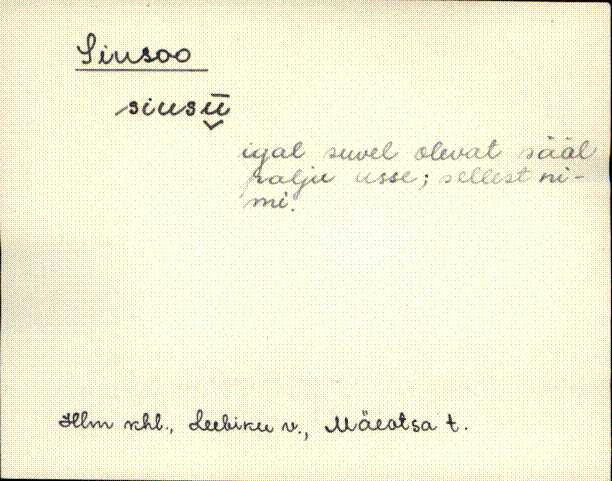 Siusoo
siusū
igal suvel olevat sääl
palju usse; sellest ni-
mi.
Hlm khl., Leebiku v., Mäeotsa t.